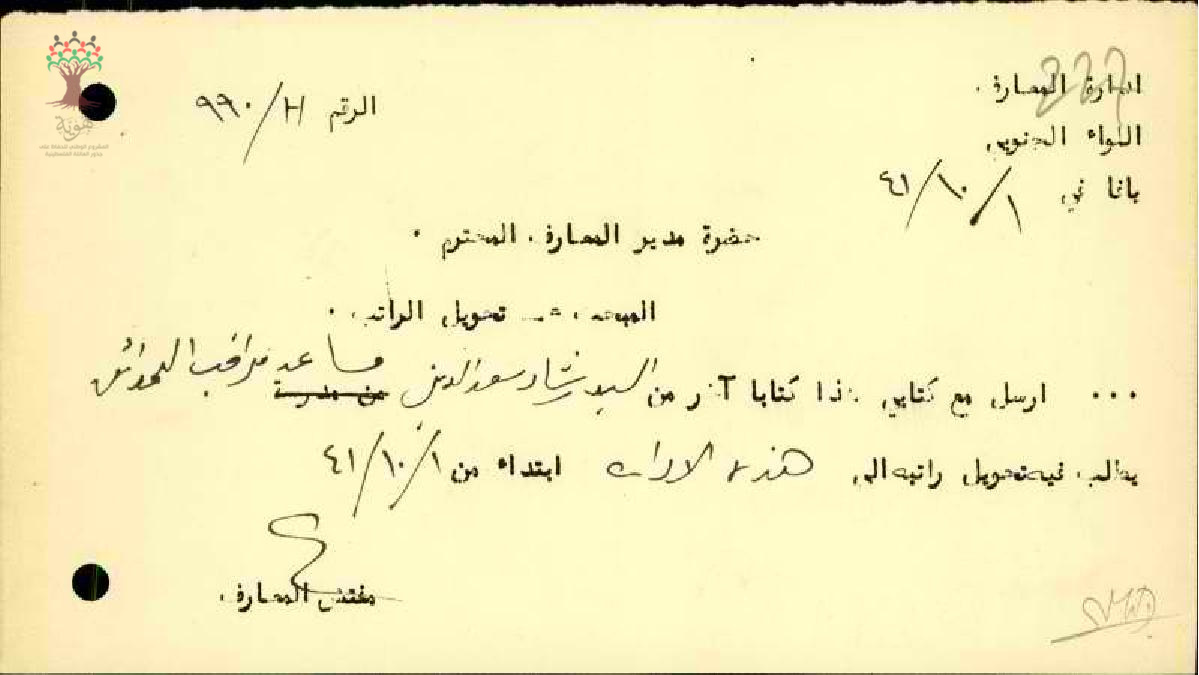 ادارة المعارف.
227
اللواء الجنوبي
يافا في ٤١/١٠/١
الرقم ٩٩٠/H
حضرة مدير المعارف المحترم.
المبحث: تحويل الراتب.
... ارسل مع كتابي هذا كتابا آخر من السيد رشاد سعد الدين من مدرسة مساعد مراقب الحدائق
يطلب فيه تحويل راتبه الى هذه الادارة ابتداء من ٤١/١٠/١
مفتش المعارف.
هوية